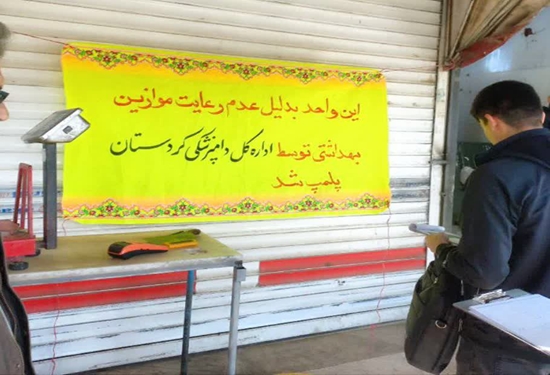 این واحد بدلیل عدم رعایت موازین
بهداشتی توسط اداره کل دامپزشکی کردستان
پلمپ شد